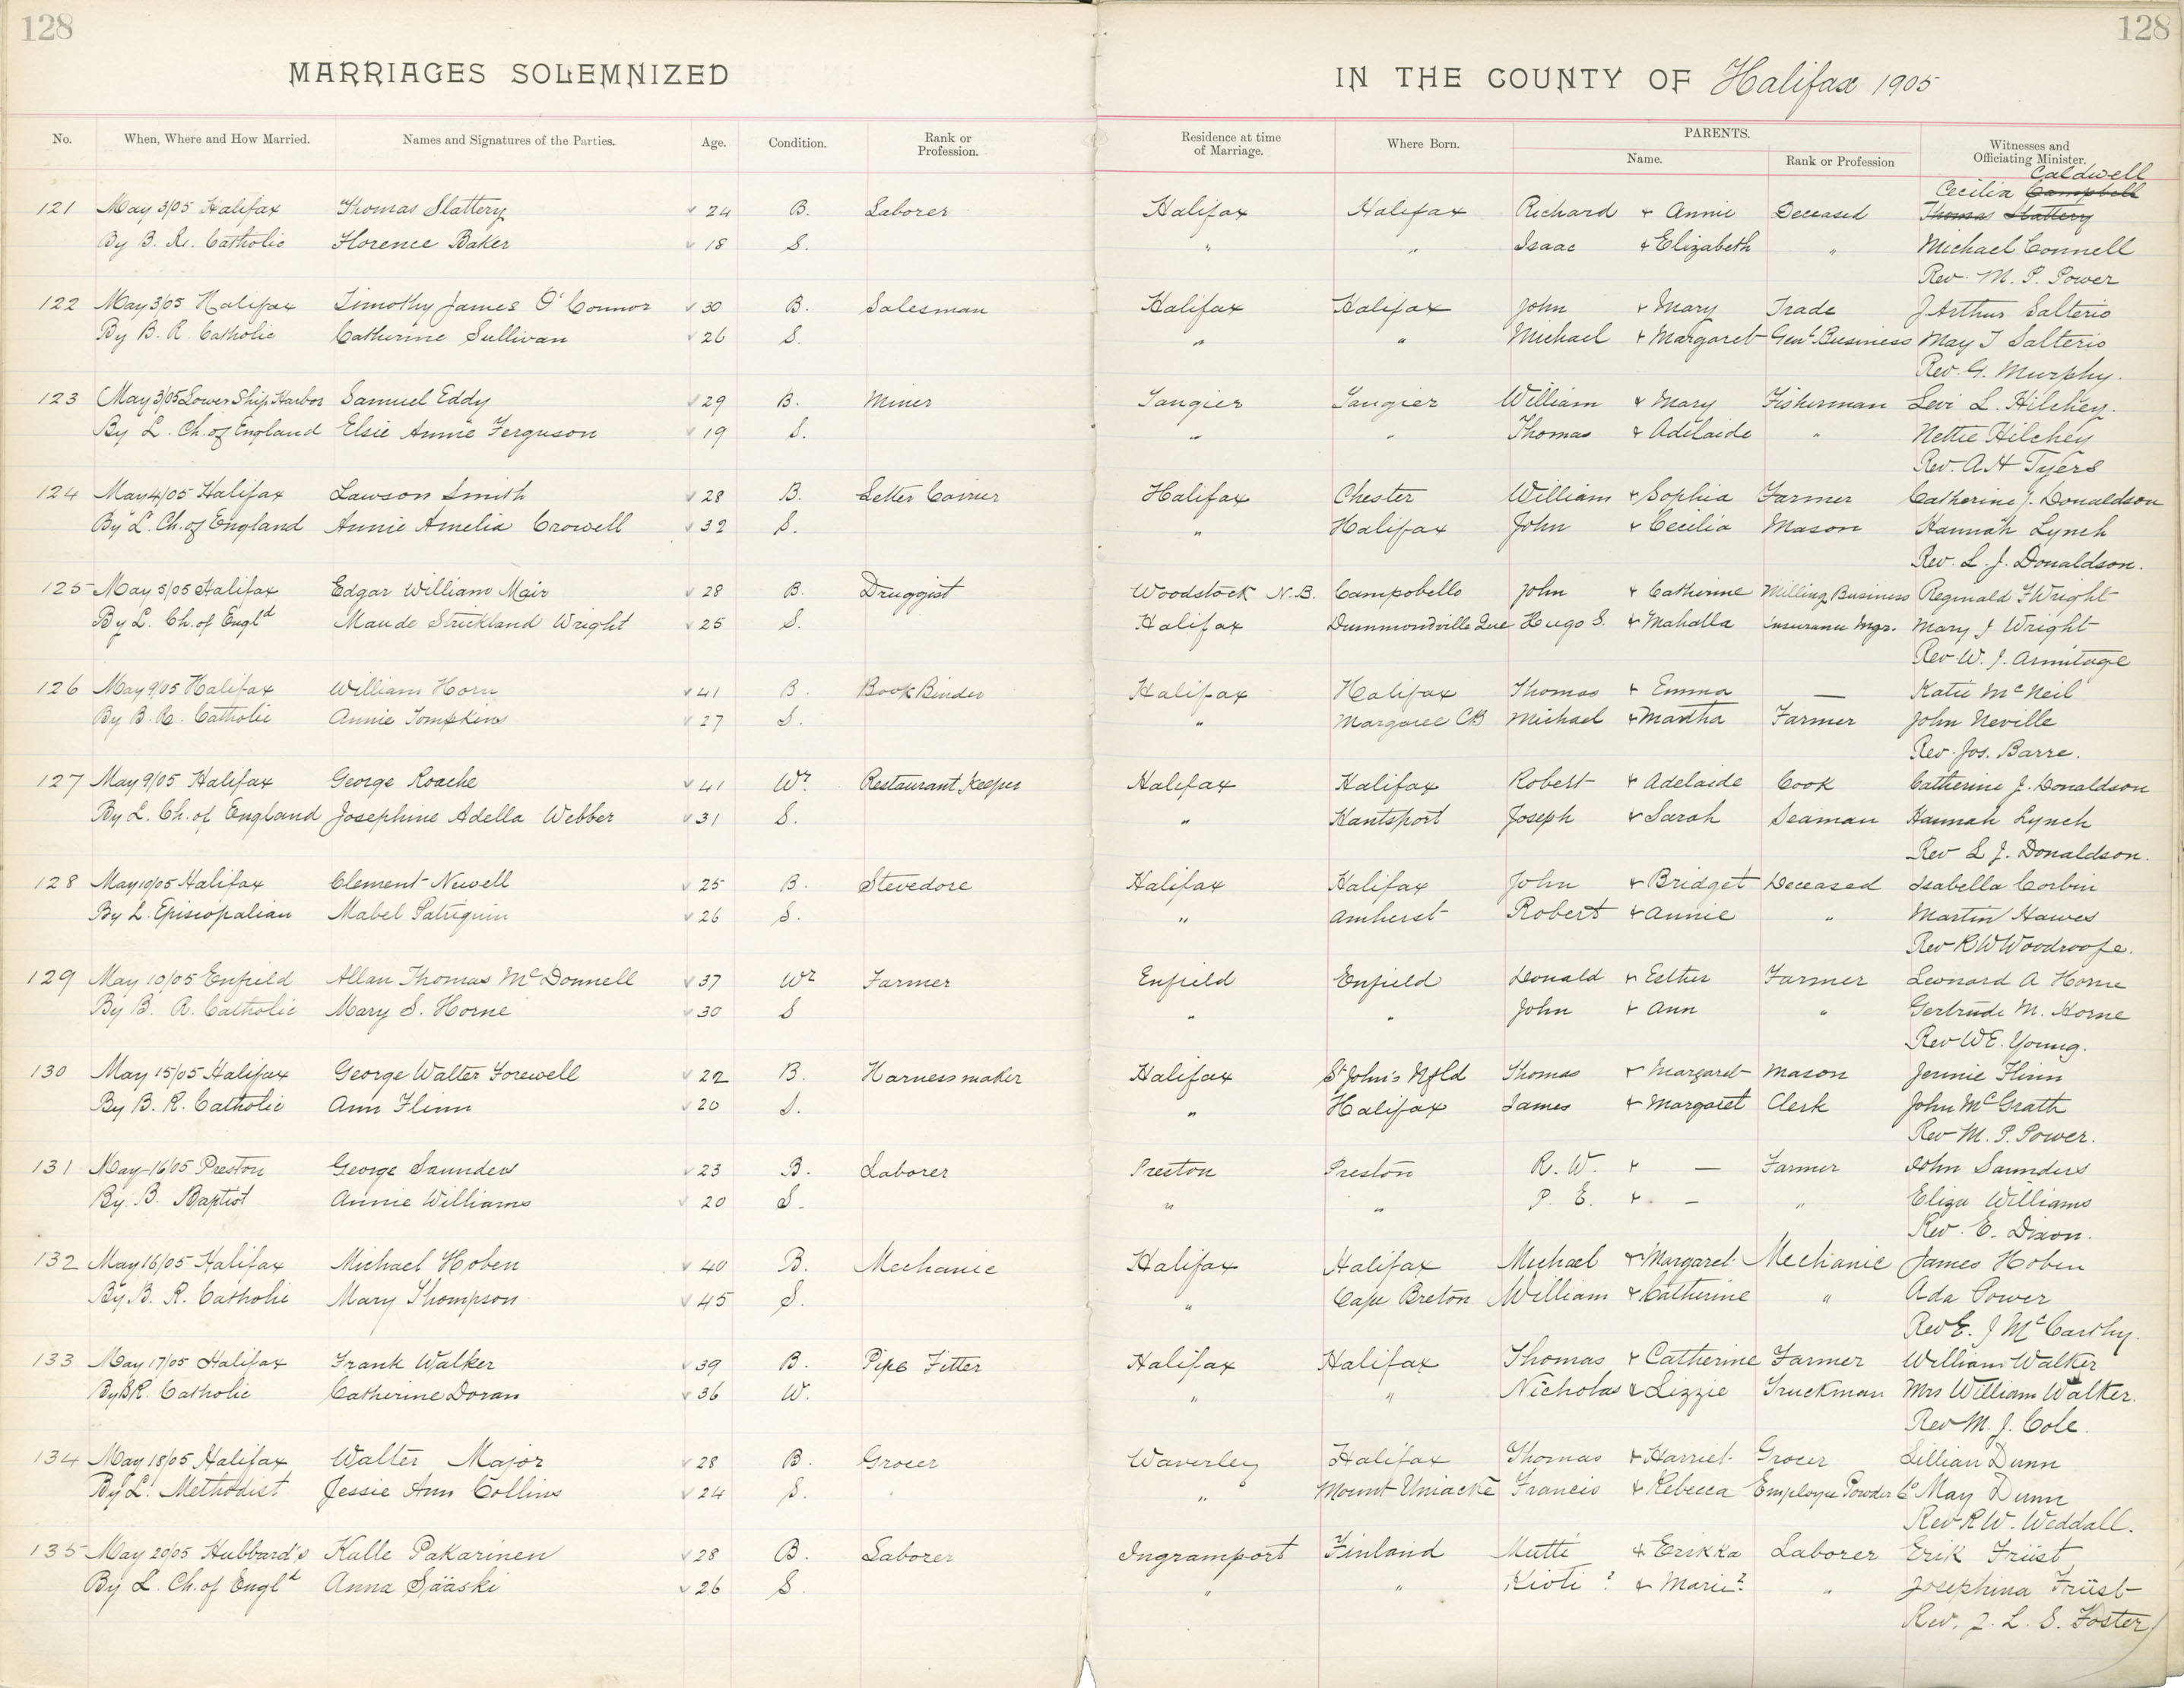 128
128
MARRIAGES SOLEMNIZED IN THE COUNTY OF Halifax 1905
No. When, Where and How Married. Names and Signatures of the Parties. Age. Condition. Rank or Profession. Residence at time of Marriage. Where Born. PARENTS. Name. Rank or Profession Witnesses and Officiating Minister.
Caldwell
Cecilia Campbell
121 May 3/05 Halifax Thomas Slattery 24 B. Laborer Halifax Halifax Richard & Annie Deceased Thomas Slattery
By B. R. Catholic Florence Baker 18 S. " " Isaac & Elizabeth " Michael Connell
Rev. M. P. Power
122 May 3/05 Halifax Timothy James O'Connor 30 B. Salesman Halifax Halifax John & Mary Trade J Arthur Salterio
By B. R. Catholic Catherine Sullivan 26 S. " " Michael & Margaret Genl. Business May T Salterio
Rev. G. Murphy.
123 May 3/05 Lower Ship Harbor Samuel Eddy 29 B. Miner Tangier Tangier William & Mary Fisherman Levi L. Hilchey.
By L. Ch. of England Elsie Annie Ferguson 19 S. " " Thomas & Adelaide " Nettie Hilchey
Rev. A H Tyers
124 May 4/05 Halifax Lawson Smith 28 B. Letter Carrier Halifax Chester William & Sophia Farmer Catherine J. Donaldson
By L. Ch. of England Annie Amelia Crowell 32 S. " Halifax John & Cecilia Mason Hannah Lynch
Rev. L. J. Donaldson.
125 May 5/05 Halifax Edgar William Mair 28 B. Druggist Woodstock N.B. Campobello John & Catherine Milling Business Reginald F Wright
By L. Ch. of Engld Maude Strickland Wright 25 S. Halifax Drummondville Que Hugo S. & Mahalla Insurance Mgr. Mary J Wright
Rev W. J. Armitage
126 May 9/05 Halifax William Horn 41 B. Book Binder Halifax Halifax Thomas & Emma — Katie McNeil
By B. R. Catholic Annie Tompkins 27 S. " Margaree CB Michael & Martha Farmer John Neville
Rev. Jos. Barre.
127 May 9/05 Halifax George Roache 41 Wr. Restaurant Keeper Halifax Halifax Robert & Adelaide Cook Catherine J. Donaldson
By L. Ch. of England Josephine Adella Webber 31 S. " Hantsport Joseph & Sarah Seaman Hannah Lynch
Rev L J. Donaldson.
128 May 10/05 Halifax Clement Newell 25 B. Stevedore Halifax Halifax John & Bridget Deceased Isabella Corbin
By L. Episcopalian Mabel Patriquin 26 S. " Amherst Robert & Annie " Martin Hawes
Rev R W Woodroofe.
129 May 10/05 Enfield Allan Thomas McDonnell 37 Wr Farmer Enfield Enfield Donald & Esther Farmer Leonard A Horne
By B. R. Catholic Mary S. Horne 30 S " " John & Ann " Gertrude M. Horne
Rev W E. Young.
130 May 15/05 Halifax George Walter Forewell 22 B. Harness maker Halifax St John's Nfld Thomas & Margaret Mason Jennie Flinn
By B. R. Catholic Ann Flinn 20 S. " Halifax James & Margaret Clerk John McGrath
Rev M. P. Power.
131 May 16/05 Preston George Saunders 23 B. Laborer Preston Preston R. W. & — Farmer John Saunders
By B. Baptist Annie Williams 20 S. " " P. E. & — " Eliza Williams
Rev. E. Dixon.
132 May 16/05 Halifax Michael Hoben 40 B. Mechanic Halifax Halifax Michael & Margaret Mechanic James Hoben
By B. R. Catholic Mary Thompson 45 S. " Cape Breton William & Catherine " Ada Power
Rev E. J McCarthy.
133 May 17/05 Halifax Frank Walker 39 B. Pipe Fitter Halifax Halifax Thomas & Catherine Farmer William Walker
By B R. Catholic Catherine Doran 36 W. " " Nicholas & Lizzie Truckman Mrs William Walker.
Rev M. J. Cole.
134 May 18/05 Halifax Walter Major 28 B. Grocer Waverley Halifax Thomas & Harriet Grocer Lillian Dunn
By L. Methodist Jessie Ann Collins 24 S. " Mount Uniacke Francis & Rebecca Employee Powder Co May Dunn
Rev R W. Weddall.
135 May 20/05 Hubbard's Kalle Pakarinen 28 B. Laborer Ingramport Finland Mutti & Erikka Laborer Erik Früst
By L. Ch. of Engld Anna Sääski 26 S. " " Kioti ? & Marie? " Josephina Früst
Rev. J. L. S. Foster